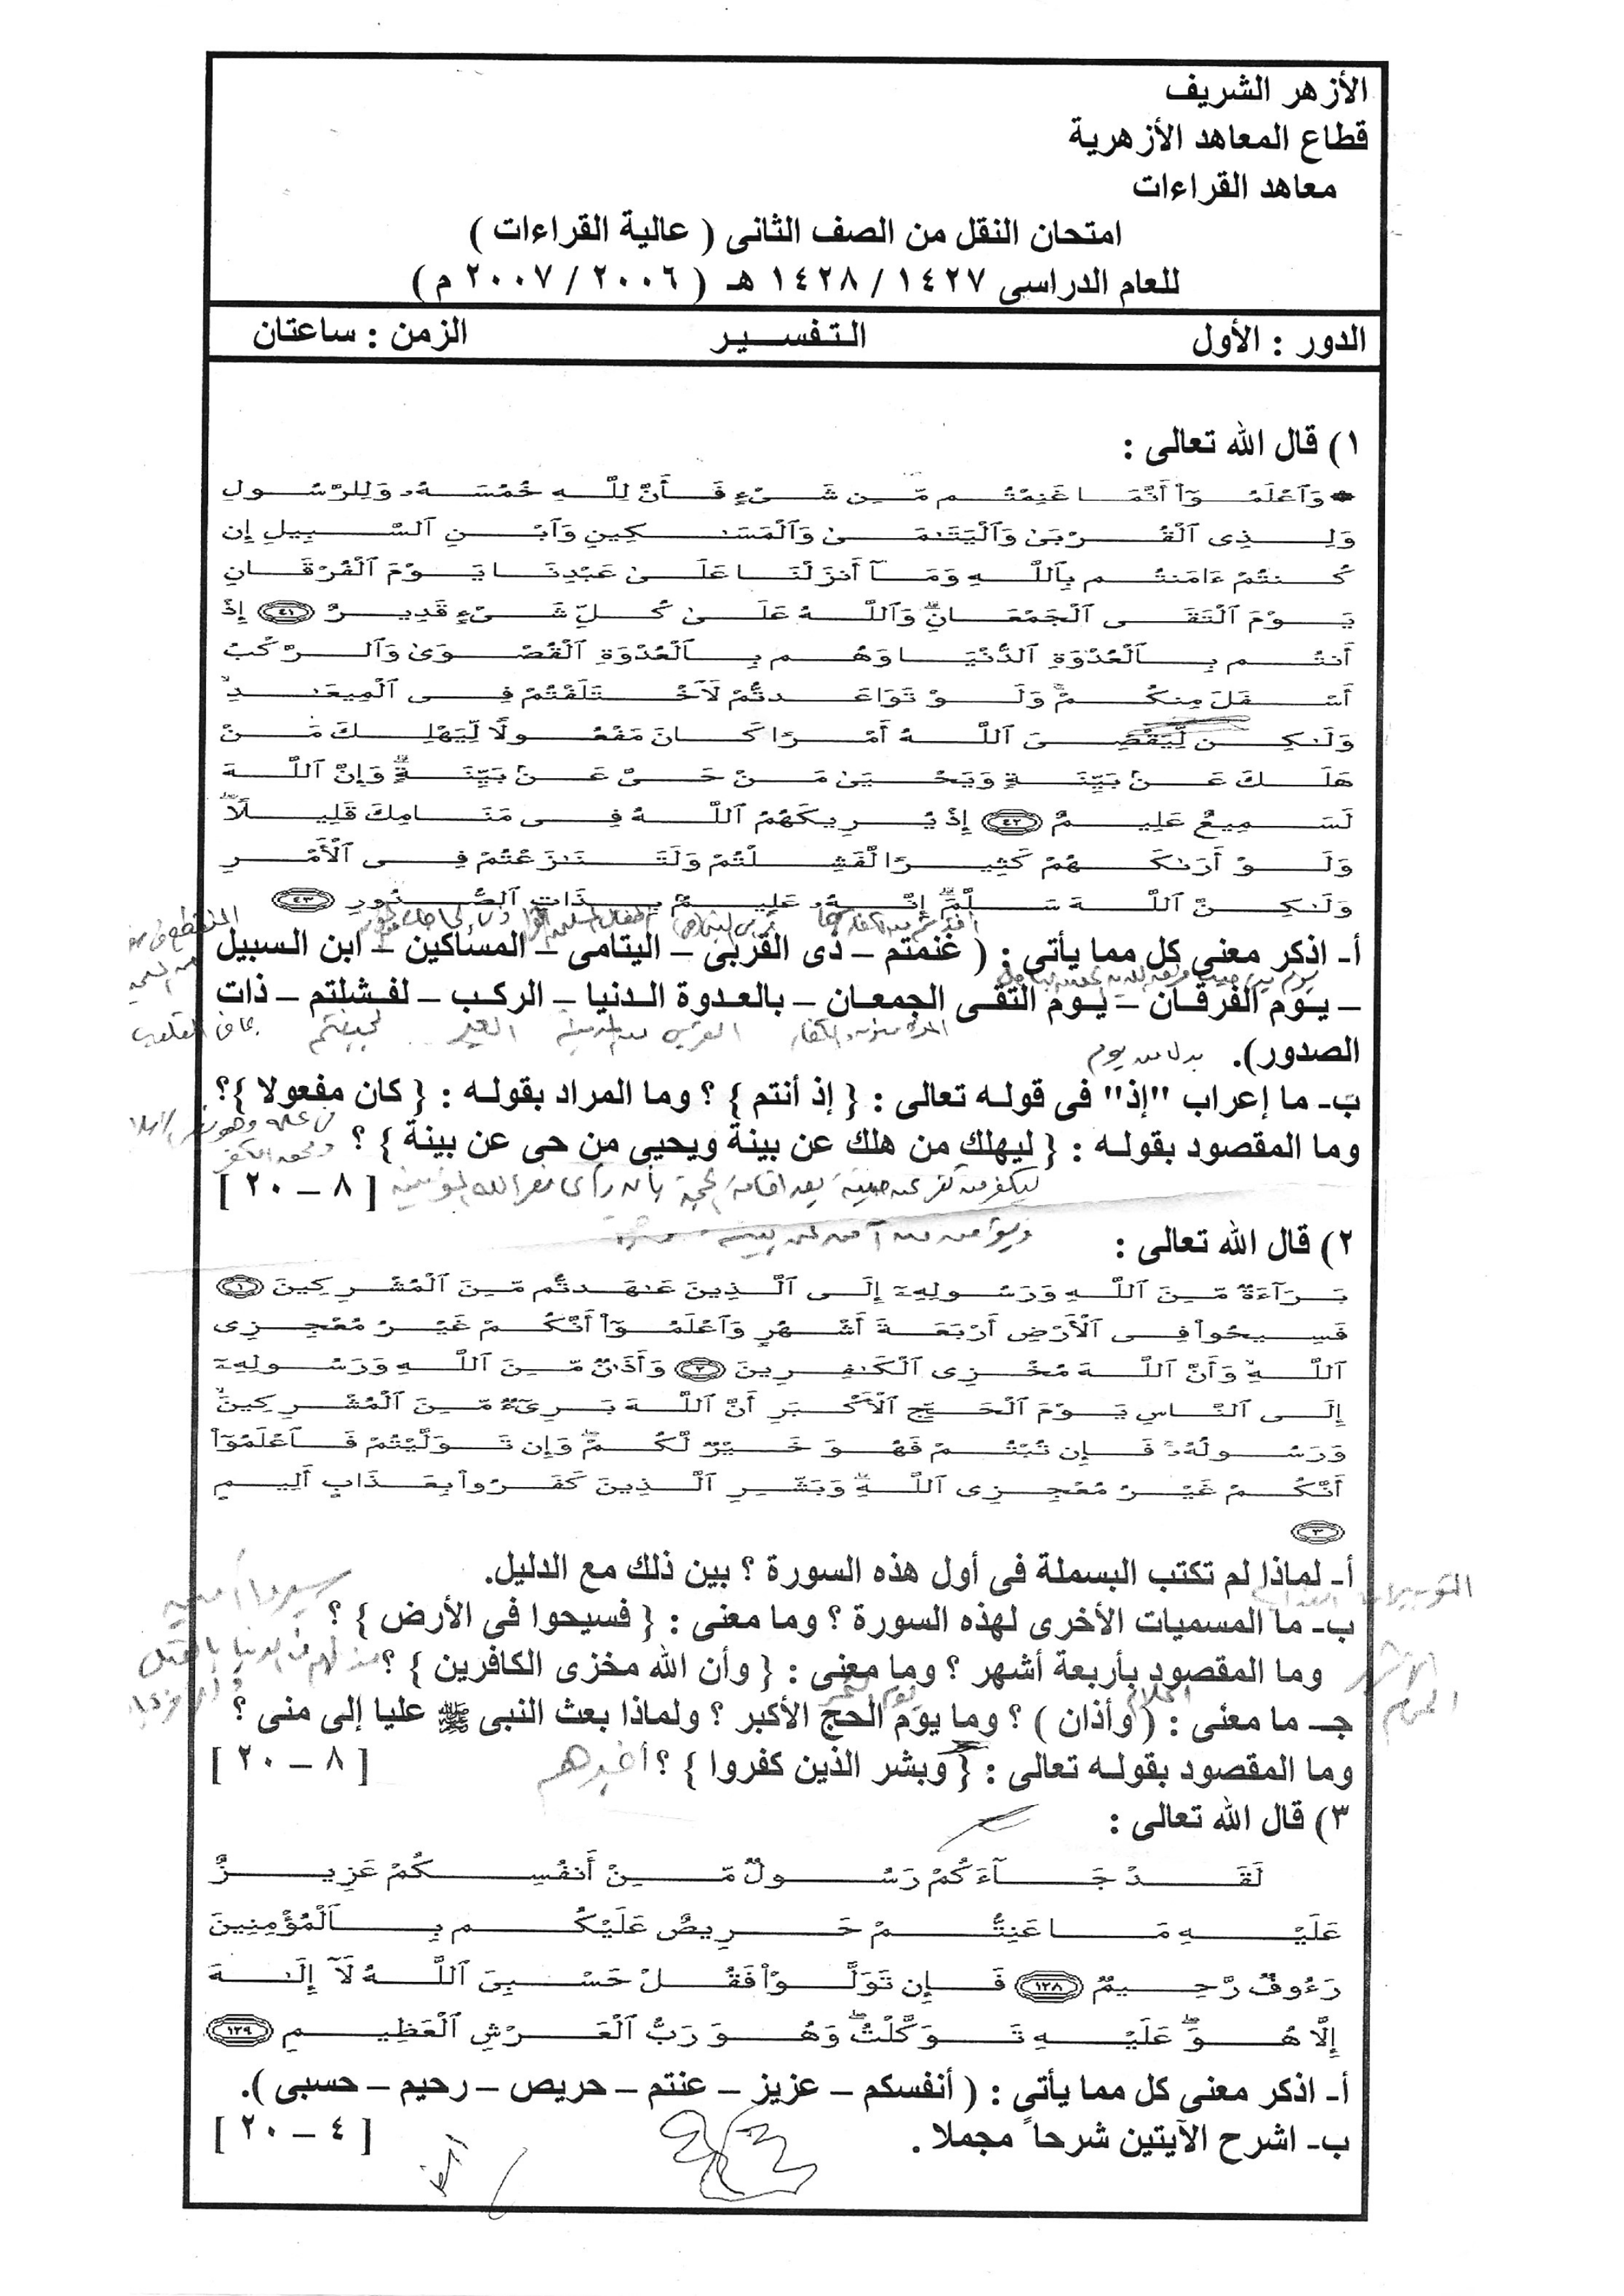 الأزهر الشريف
قطاع المعاهد الأزهرية
معاهد القراءات
امتحان النقل من الصف الثانى ( عالية القراءات )
للعام الدراسى ١٤٢٧ / ١٤٢٨ هـ ( ٢٠٠٦ / ٢٠٠٧ م )
الدور : الأول التفسير الزمن : ساعتان
١) قال الله تعالى :
وَٱعْلَمُوٓا۟ أَنَّمَا غَنِمْتُم مِّن شَىْءٍ فَأَنَّ لِلَّهِ خُمُسَهُۥ وَلِلرَّسُولِ
وَلِذِى ٱلْقُرْبَىٰ وَٱلْيَتَـٰمَىٰ وَٱلْمَسَـٰكِينِ وَٱبْنِ ٱلسَّبِيلِ إِن
كُنتُمْ ءَامَنتُم بِٱللَّهِ وَمَآ أَنزَلْنَا عَلَىٰ عَبْدِنَا يَوْمَ ٱلْفُرْقَانِ
يَوْمَ ٱلْتَقَى ٱلْجَمْعَانِ ۗ وَٱللَّهُ عَلَىٰ كُلِّ شَىْءٍ قَدِيرٌ ٤١ إِذْ
أَنتُم بِٱلْعُدْوَةِ ٱلدُّنْيَا وَهُم بِٱلْعُدْوَةِ ٱلْقُصْوَىٰ وَٱلرَّكْبُ
أَسْفَلَ مِنكُمْ ۚ وَلَوْ تَوَاعَدتُّمْ لَٱخْتَلَفْتُمْ فِى ٱلْمِيعَـٰدِ ۙ
وَلَـٰكِن لِّيَقْضِىَ ٱللَّهُ أَمْرًا كَانَ مَفْعُولًا لِّيَهْلِكَ مَنْ
هَلَكَ عَنۢ بَيِّنَةٍ وَيَحْيَىٰ مَنْ حَىَّ عَنۢ بَيِّنَةٍ ۗ وَإِنَّ ٱللَّهَ
لَسَمِيعٌ عَلِيمٌ ٤٢ إِذْ يُرِيكَهُمُ ٱللَّهُ فِى مَنَامِكَ قَلِيلًا ۖ
وَلَوْ أَرَىٰكَهُمْ كَثِيرًا لَّفَشِلْتُمْ وَلَتَنَـٰزَعْتُمْ فِى ٱلْأَمْرِ
وَلَـٰكِنَّ ٱللَّهَ سَلَّمَ ۗ إِنَّهُۥ عَلِيمٌۢ بِذَاتِ ٱلصُّدُورِ ٤٣
أ- اذكر معنى كل مما يأتى : ( غنمتم – ذى القربى – اليتامى – المساكين – ابن السبيل
– يوم الفرقان – يوم التقى الجمعان – بالعدوة الدنيا – الركب – لفشلتم – ذات
العير لجبنتم
الصدور). بدل من يوم
ب- ما إعراب "إذ" فى قوله تعالى : { إذ أنتم } ؟ وما المراد بقوله : { كان مفعولا }؟
وما المقصود بقوله : { ليهلك من هلك عن بينة ويحيى من حى عن بينة } ؟
[ ٨ – ٢٠ ]
٢) قال الله تعالى :
بَرَآءَةٌ مِّنَ ٱللَّهِ وَرَسُولِهِۦٓ إِلَى ٱلَّذِينَ عَـٰهَدتُّم مِّنَ ٱلْمُشْرِكِينَ ١
فَسِيحُوا۟ فِى ٱلْأَرْضِ أَرْبَعَةَ أَشْهُرٍ وَٱعْلَمُوٓا۟ أَنَّكُمْ غَيْرُ مُعْجِزِى
ٱللَّهِ ۙ وَأَنَّ ٱللَّهَ مُخْزِى ٱلْكَـٰفِرِينَ ٢ وَأَذَٰنٌ مِّنَ ٱللَّهِ وَرَسُولِهِۦٓ
إِلَى ٱلنَّاسِ يَوْمَ ٱلْحَجِّ ٱلْأَكْبَرِ أَنَّ ٱللَّهَ بَرِىٓءٌ مِّنَ ٱلْمُشْرِكِينَ ۙ
وَرَسُولُهُۥ ۚ فَإِن تُبْتُمْ فَهُوَ خَيْرٌ لَّكُمْ ۖ وَإِن تَوَلَّيْتُمْ فَٱعْلَمُوٓا۟
أَنَّكُمْ غَيْرُ مُعْجِزِى ٱللَّهِ ۗ وَبَشِّرِ ٱلَّذِينَ كَفَرُوا۟ بِعَذَابٍ أَلِيمٍ
٣
أ- لماذا لم تكتب البسملة فى أول هذه السورة ؟ بين ذلك مع الدليل.
ب- ما المسميات الأخرى لهذه السورة ؟ وما معنى : { فسيحوا فى الأرض } ؟
وما المقصود بأربعة أشهر ؟ وما معنى : { وأن الله مخزى الكافرين } ؟
جـ- ما معنى : ( وأذان ) ؟ وما يوم الحج الأكبر ؟ ولماذا بعث النبى ﷺ عليا إلى منى ؟
وما المقصود بقوله تعالى : { وبشر الذين كفروا } ؟ أخبرهم [ ٨ – ٢٠ ]
٣) قال الله تعالى :
لَقَدْ جَآءَكُمْ رَسُولٌ مِّنْ أَنفُسِكُمْ عَزِيزٌ
عَلَيْهِ مَا عَنِتُّمْ حَرِيصٌ عَلَيْكُم بِٱلْمُؤْمِنِينَ
رَءُوفٌ رَّحِيمٌ ١٢٨ فَإِن تَوَلَّوْا۟ فَقُلْ حَسْبِىَ ٱللَّهُ لَآ إِلَـٰهَ
إِلَّا هُوَ ۖ عَلَيْهِ تَوَكَّلْتُ ۖ وَهُوَ رَبُّ ٱلْعَرْشِ ٱلْعَظِيمِ ١٢٩
أ- اذكر معنى كل مما يأتى : ( أنفسكم – عزيز – عنتم – حريص – رحيم – حسبى ).
ب- اشرح الآيتين شرحاً مجملا . [ ٤ – ٢٠ ]